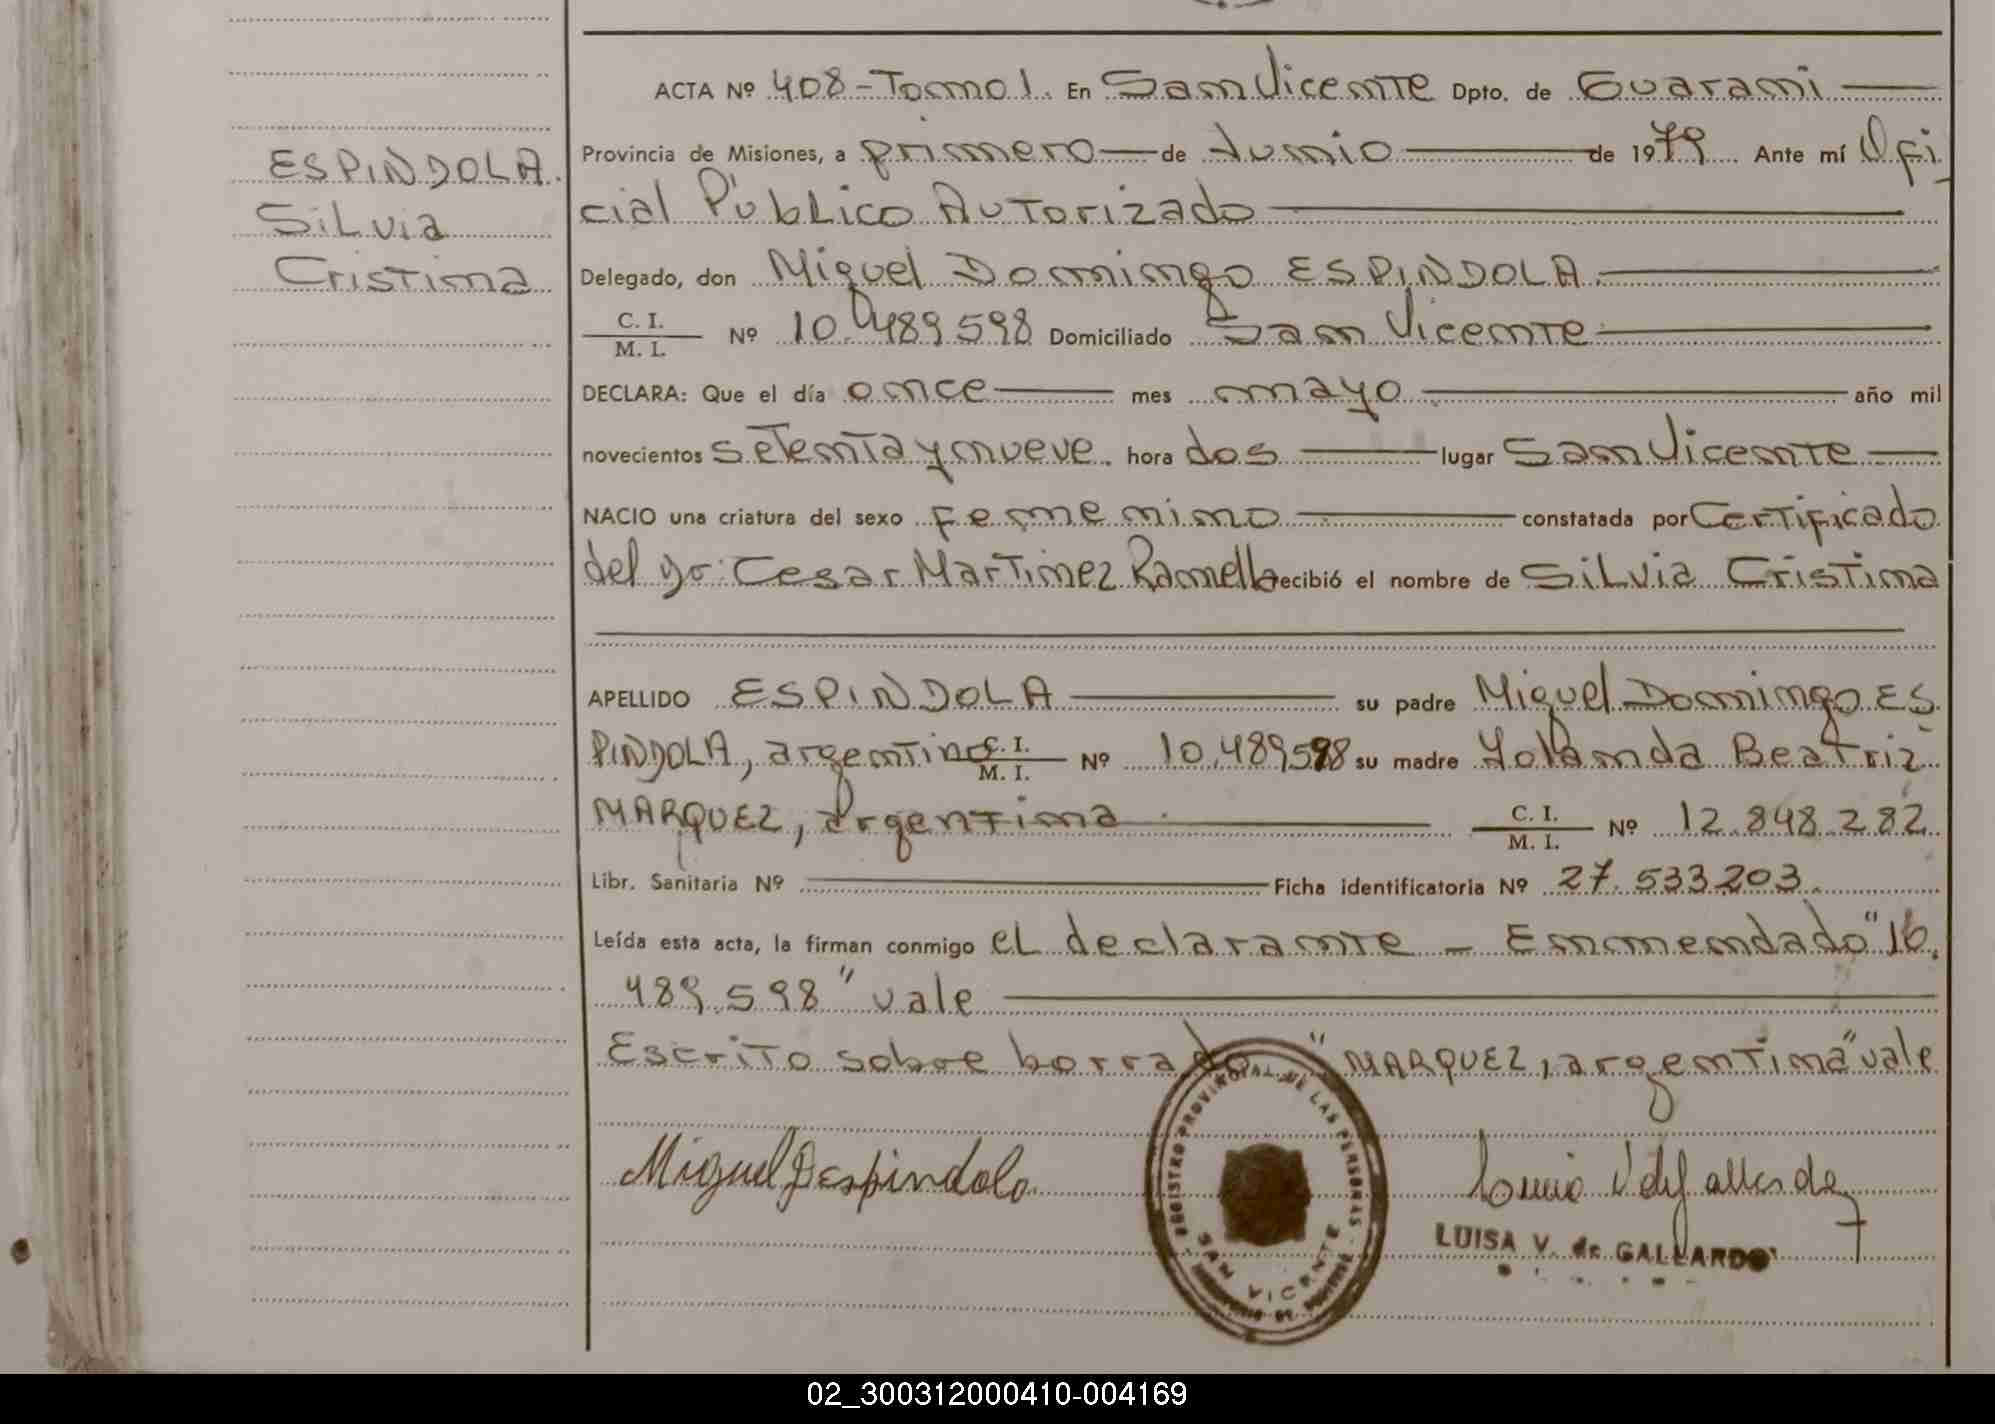 ESPINDOLA
Silvia
Cristina
ACTA Nº 408-Tomo I. En San Vicente Dpto. de Guarani
Provincia de Misiones, a primero de Junio de 1979 Ante mí Ofi
cial Público Autorizado
Delegado, don Miguel Domingo ESPINDOLA
C. I.
M. I. Nº 10.489.598 Domiciliado San Vicente
DECLARA: Que el día once mes mayo año mil
novecientos setenta y nueve. hora dos lugar San Vicente
NACIO una criatura del sexo femenino constatada por Certificado
del Cesar Martinez Ramella recibió el nombre de Silvia Cristina
APELLIDO ESPINDOLA su padre Miguel Domingo ES
PINDOLA, argentino C. I.
M. I. Nº 10.489598 su madre Yolanda Beatriz
MARQUEZ, argentina C. I.
M. I. Nº 12.848.282
Libr. Sanitaria Nº Ficha identificatoria Nº 27.533.203
Leída esta acta, la firman conmigo el declarante - Enmendado "10.
489.598" vale
Escrito sobre borrado "MARQUEZ, argentina" vale
Miguel D espindola
LUISA V. de GALLARDO
REGISTRO PROVINCIAL DE LAS PERSONAS
SAN VICENTE
02_300312000410-004169